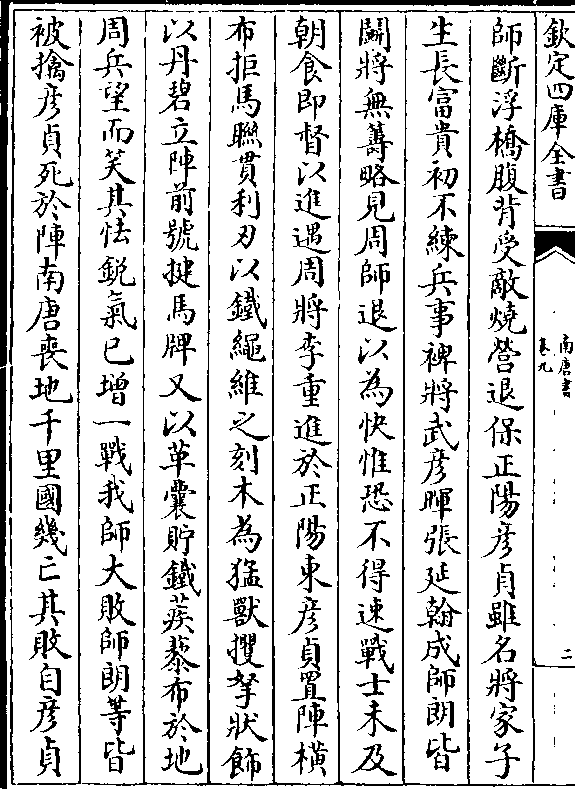 欽定四庫全書
南唐書
卷九
二
師斷浮橋腹背受敵燒營退保正陽彦貞雖名將家子
生長富貴初不練兵事裨將武彦暉張延翰成師朗皆
鬭將無籌略見周師退以為快惟恐不得速戰士未及
朝食即督以進遇周將李重進於正陽東彦貞置陣橫
布拒馬聯貫利刃以鐵繩維之刻木為猛獸攫拏狀飾
以丹碧立陣前號揵馬牌又以革囊貯鐵蒺藜布於地
周兵望而笑其怯鋭氣已增一戰我師大敗師朗等皆
被擒彦貞死於陣南唐喪地千里國幾亡其敗自彦貞